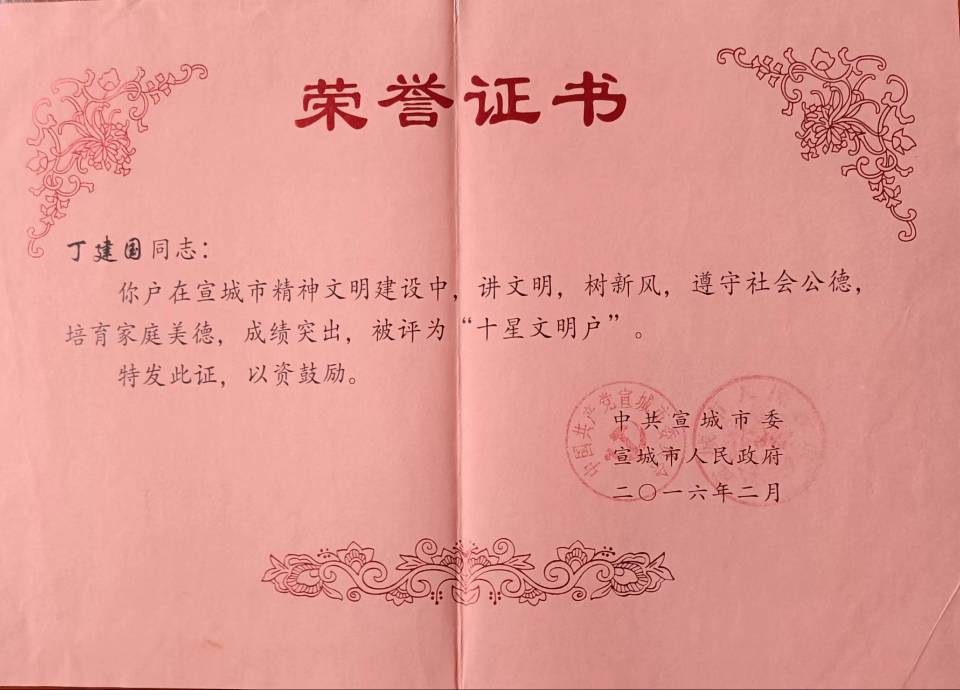 荣誉证书
丁建国同志：
你户在宣城市精神文明建设中，讲文明，树新风，遵守社会公德，
培育家庭美德，成绩突出，被评为“十星文明户”。
特发此证，以资鼓励。
中国共产党宣城市委
中共宣城市委
宣城市人民政府
二〇一六年二月